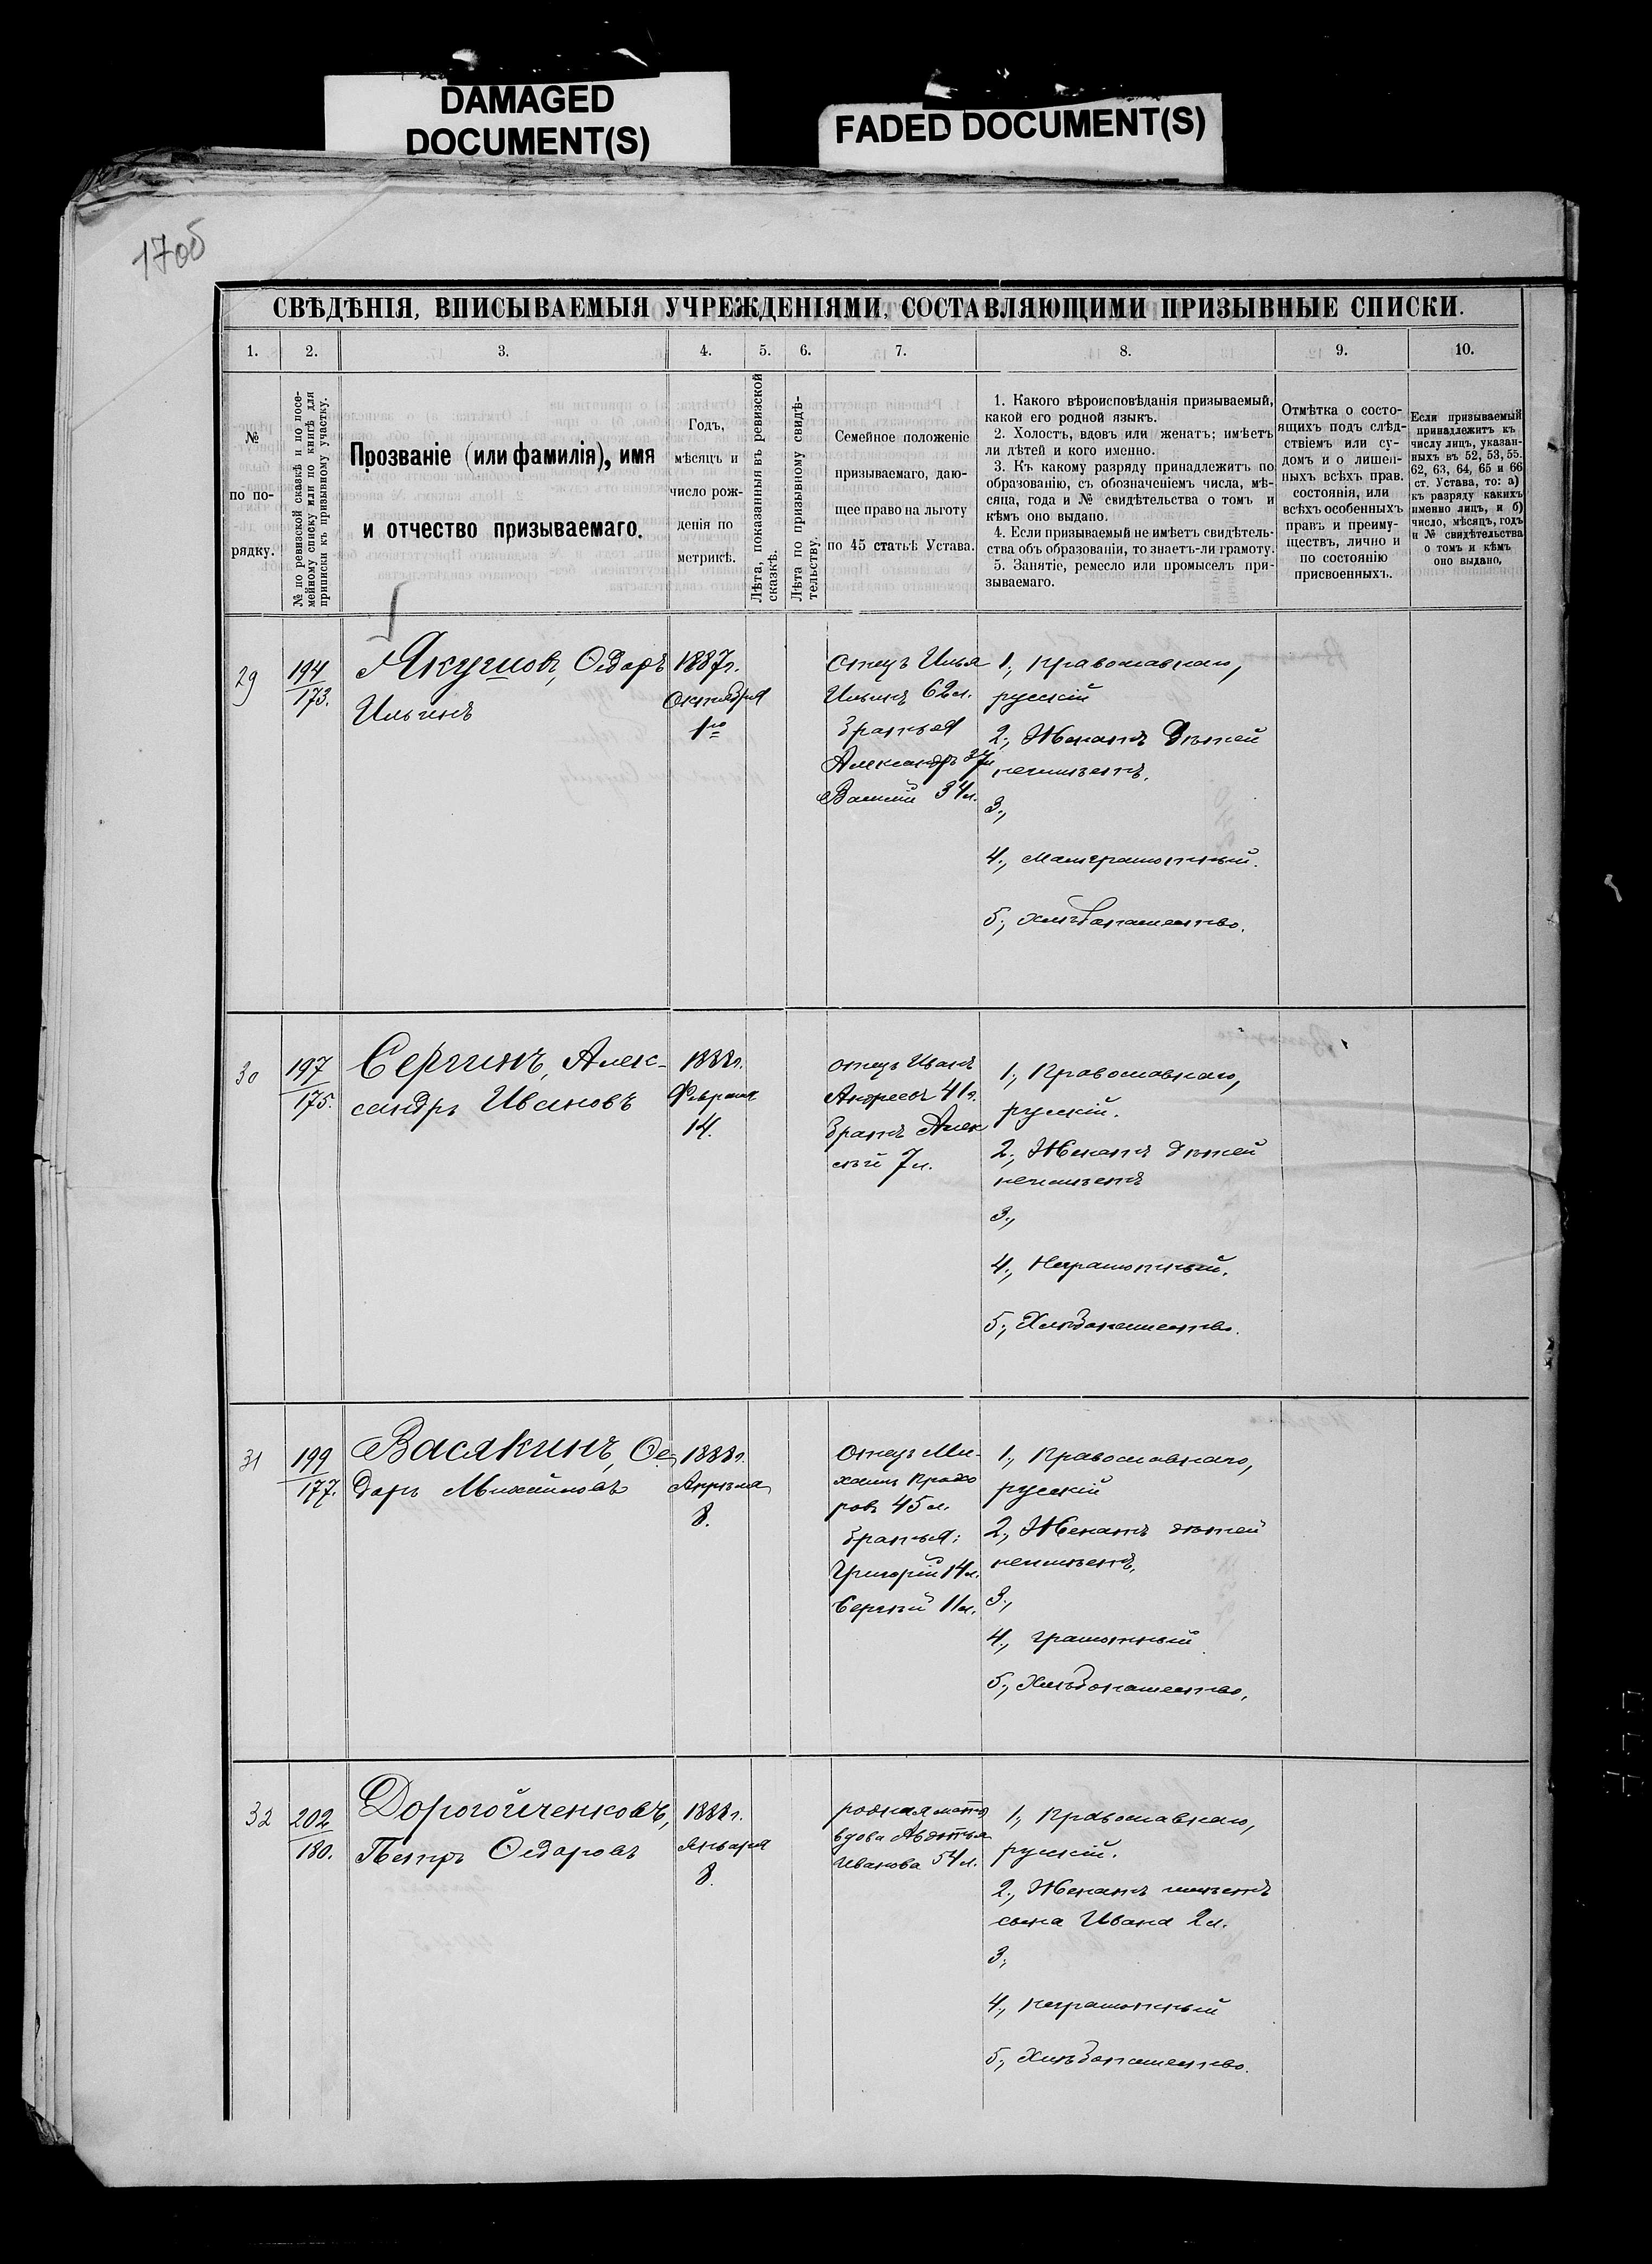 DAMAGED
DOCUMENT(S)
FADED DOCUMENT(S)
170об
СВѢДѢНІЯ, ВПИСЫВАЕМЫЯ УЧРЕЖДЕНІЯМИ, СОСТАВЛЯЮЩИМИ ПРИЗЫВНЫЕ СПИСКИ.
1. 2. 3. 4. 5. 6. 7. 8. 9. 10.
№
по по-
рядку.
№ по ревизской сказкѣ и по посе-
мейному списку или по книгѣ для
приписки къ призывному участку.
Прозваніе (или фамилія), имя
и отчество призываемаго.
Годъ,
мѣсяцъ и
число рож-
денія по
метрикѣ.
Лѣта, показанныя въ ревизской
сказкѣ.
Лѣта по призывному свидѣ-
тельству.
Семейное положеніе
призываемаго, даю-
щее право на льготу
по 45 статьѣ Устава.
1. Какого вѣроисповѣданія призываемый,
какой его родной языкъ.
2. Холостъ, вдовъ или женатъ; имѣетъ
ли дѣтей и кого именно.
3. Къ какому разряду принадлежитъ по
образованію, съ обозначеніемъ числа, мѣ-
сяца, года и № свидѣтельства о томъ и
кѣмъ оно выдано.
4. Если призываемый не имѣетъ свидѣтель-
ства объ образованіи, то знаетъ-ли грамоту.
5. Занятіе, ремесло или промыселъ при-
зываемаго.
Отмѣтка о состо-
ящихъ подъ слѣд-
ствіемъ или су-
домъ и о лишен-
ныхъ всѣхъ прав.
состоянія, или
всѣхъ особенныхъ
правъ и преиму-
ществъ, лично и
по состоянію
присвоенныхъ.
Если призываемый
принадлежитъ къ
числу лицъ, указан-
ныхъ въ 52, 53, 55.
62, 63, 64, 65 и 66
ст. Устава, то: а)
къ разряду какихъ
именно лицъ, и б)
число, мѣсяцъ, годъ
и № свидѣтельства
о томъ и кѣмъ
оно выдано.
29
194
173.
Якушовъ, Ѳедоръ
Ильинъ
1887г.
Октября
1го
Отецъ Илья
Ильинъ 62л.
братья
Александръ 37л
Василій 34л.
1., Православнаго,
русскій
2., Женатъ дѣтей
неимѣетъ.
3.,
4., Малограмотный.
5., Хлѣбопашество.
30
197
175.
Сергинъ, Алек-
сандръ Ивановъ
1888г.
Февраля
14.
отецъ Иванъ
Андреевъ 41г.
братъ Алек
сѣй 7л.
1., Православнаго,
русскій.
2., Женатъ дѣтей
неимѣетъ
3.,
4., Неграмотный.
5., Хлѣбопашество.
31
199
177.
Васякинъ, Ѳе
доръ Михайловъ
1888г.
Апрѣля
8.
Отецъ Ми-
хаилъ Прохо
ровъ 45л.
братья:
Григорій 14л.
Сергѣй 11л.
1., Православнаго,
русскій
2., Женатъ дѣтей
неимѣетъ.
3.,
4., грамотный
5., Хлѣбопашество,
32
202
180.
Дорогойченковъ,
Петръ Ѳедоровъ
1888г.
Января
8.
родная мать
вдова Авдотья
Иванова 54л.
1., Православнаго,
русскій.
2., Женатъ имѣетъ
сына Ивана 2л.
3.,
4., неграмотный
5., Хлѣбопашество.